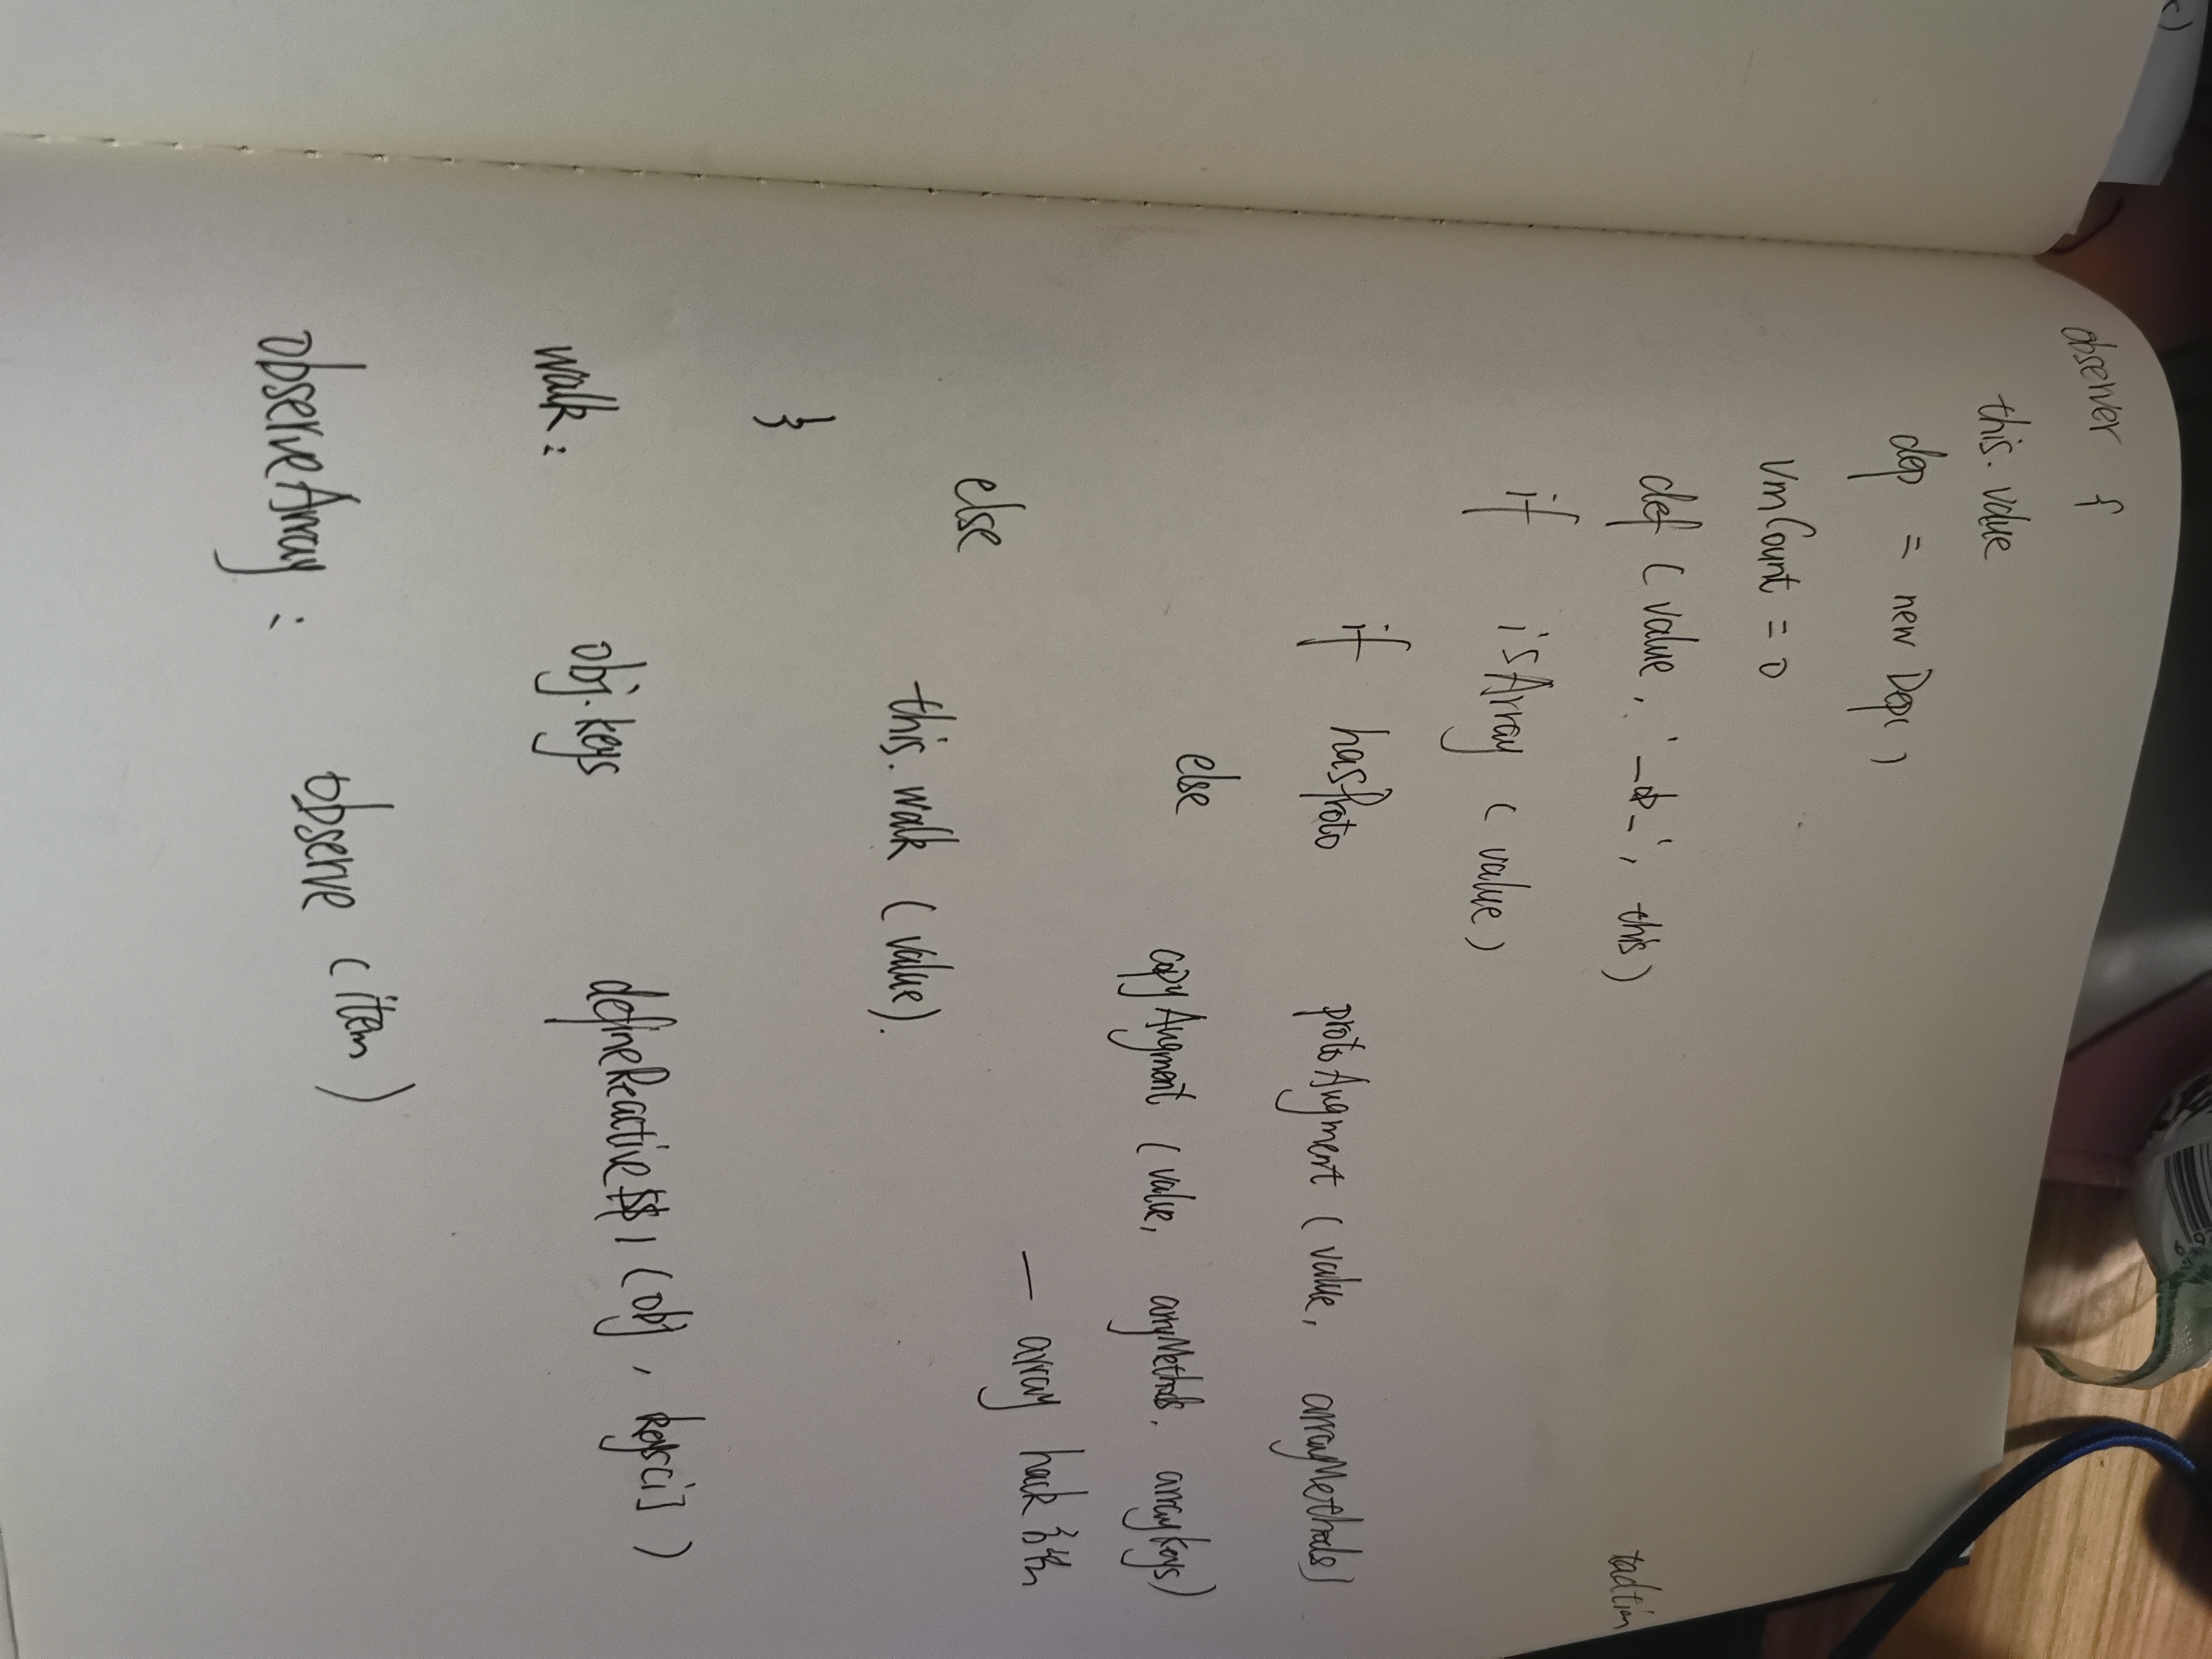 observer {
this. value
dep = new Dep( )
vmCount = 0
def ( value, '_ob_', this )
if isArray ( value )
if hasProto protoAugment ( value, arrayMethods )
else copyAugment ( value, arrayMethods, arrayKeys )
— array hack
else
this. walk ( value ).
}
walk : obj. keys defineReactive$$1 ( obj, keys[i] )
observeArray : observe ( item )
69